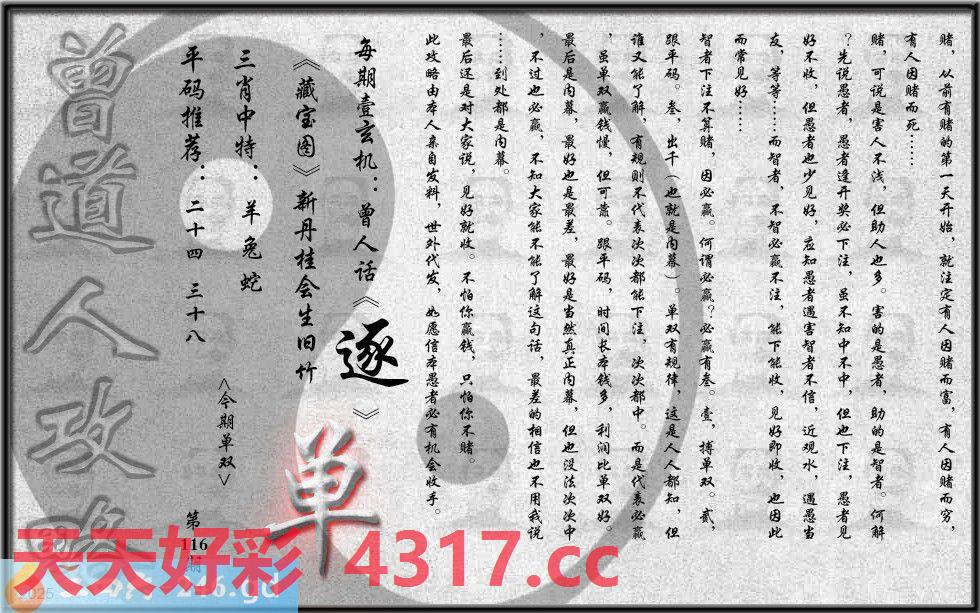 赌，从前有赌的第一天开始，就注定有人因赌而富，有人因赌而穷，
有人因赌而死……
赌，可说是害人不浅，但助人也多。害的是愚者，助的是智者。何解
？先说愚者，愚者逢开奖必下注，虽不知中不中，但也下注，愚者见
好不收，但愚者也少见好，应知愚者遇害智者不信，近观水，遇愚当
友，等等……而智者，不智必赢不注，能下能收，见好即收，也因此
而常见好……
智者下注不算赌，因必赢。何谓必赢？必赢有叁。壹，搏单双。贰，
跟平码。叁，出千（也就是内幕）。单双有规律，这是人人都知，但
谁又能了解，有规则不代表次次都能下注，次次都中。而是代表必赢
，虽单双赢钱慢，但可靠。跟平码，时间长本钱多，利润比单双好。
最后是内幕，最好也是最差，最好是当然真正内幕，但也没法次次中
，不过也必赢，不知大家能不能了解这句话，最差的相信也不用我说
……到处都是内幕。
最后还是对大家说，见好就收。不怕你赢钱，只怕你不赌。
此攻略由本人亲自发料，世外代发，如愿信本愚者必有机会收手。
每期壹玄机：曾人话《逐》
《藏宝图》新丹桂会生旧竹
单
三肖中特：羊兔蛇
<今期单双>
平码推荐：二十四 三十八
第116期
曾道人攻略
天天好彩 4317.cc
2025